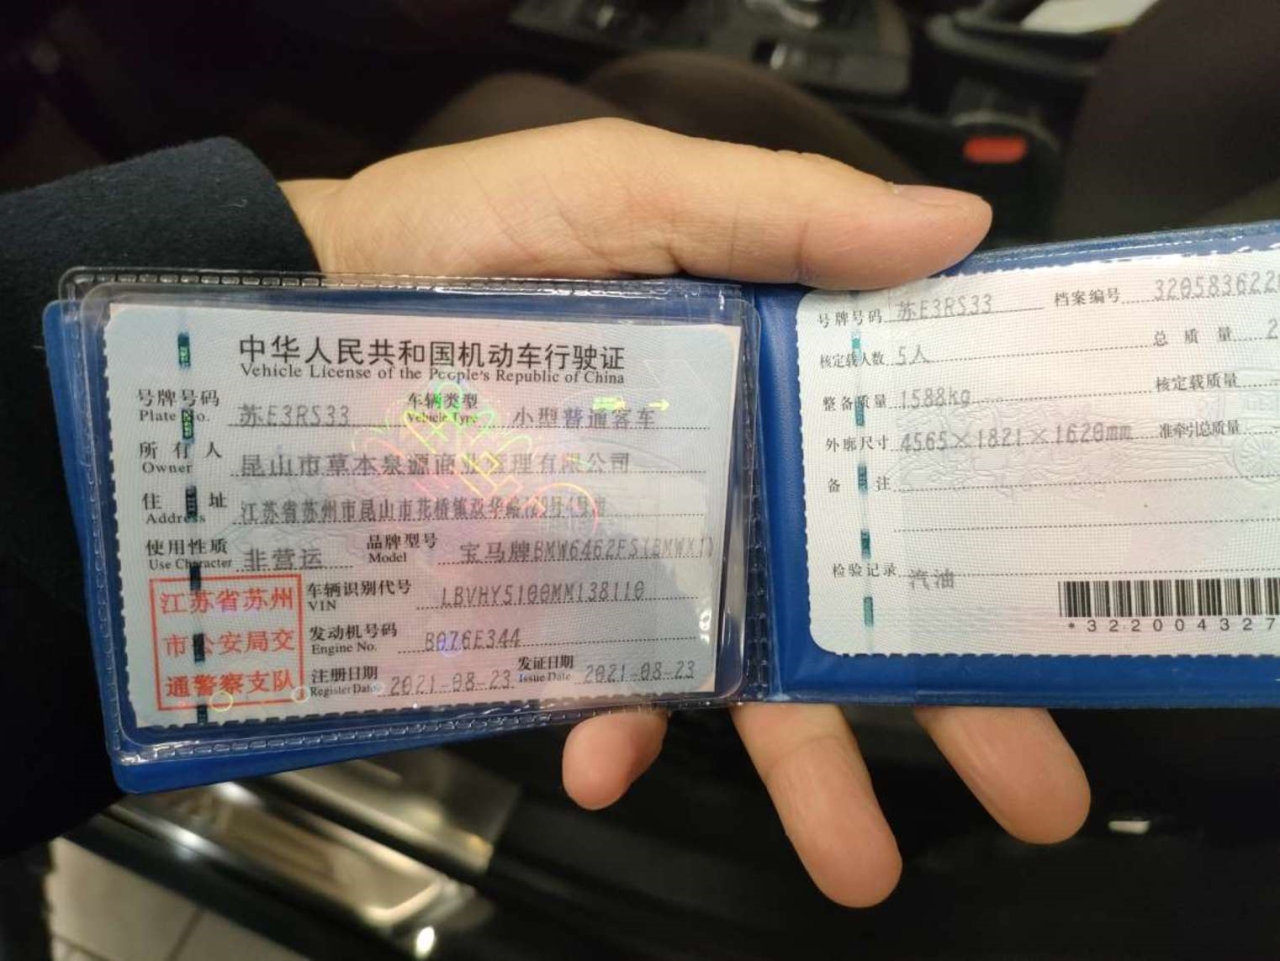 中华人民共和国机动车行驶证
Vehicle License of the People's Republic of China
号牌号码 苏E3RS33 车辆类型 小型普通客车
Plate No. Vehicle Type
所有人 昆山市草本泉源商业管理有限公司
Owner
住址 江苏省苏州市昆山市花桥镇双华路
Address
使用性质 非营运 品牌型号 宝马牌BMW6462FS(BMWX1)
Use Character Model
江苏省苏州
市公安局交
通警察支队
车辆识别代号 LBVHY5100MM138110
VIN
发动机号码 B076E344
Engine No.
注册日期 2021-08-23 发证日期 2021-08-23
Register Date Issue Date
号牌号码 苏E3RS33 档案编号 320583622
核定载人数 5人 总质量 2
整备质量 1588kg 核定载质量
外廓尺寸 4565×1821×1620mm 准牵引总质量
备注
检验记录 汽油
*322004327